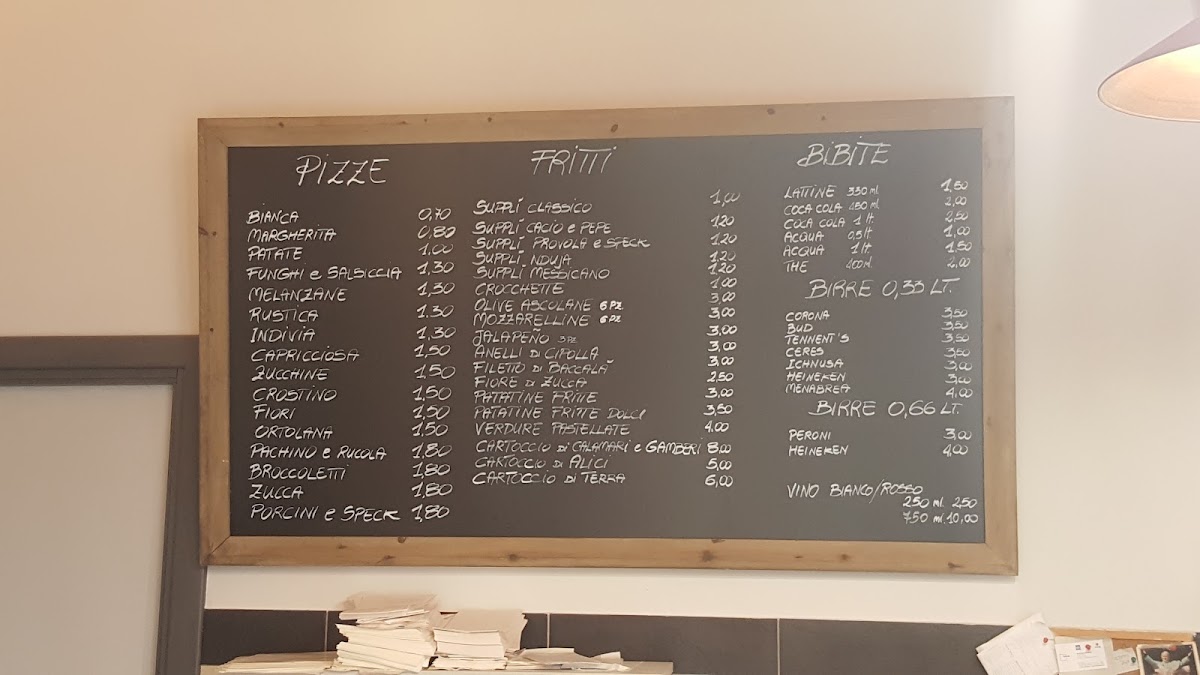 PIZZE
BIANCA 0,70
MARGHERITA 0,80
PATATE 1,00
FUNGHI e SALSICCIA 1,30
MELANZANE 1,30
RUSTICA 1,30
INDIVIA 1,30
CAPRICCIOSA 1,50
ZUCCHINE 1,50
CROSTINO 1,50
FIORI 1,50
ORTOLANA 1,50
PACHINO e RUCOLA 1,80
BROCCOLETTI 1,80
ZUCCA 1,80
PORCINI e SPECK 1,80
FRITTI
SUPPLÍ CLASSICO 1,00
SUPPLÍ CACIO e PEPE 1,20
SUPPLÍ PROVOLA e SPECK 1,20
SUPPLÍ NDUJA 1,20
SUPPLÍ MESSICANO 1,20
CROCCHETTE 1,00
OLIVE ASCOLANE 6 PZ 3,00
MOZZARELLINE 6 PZ 3,00
JALAPEÑO 3 PZ 3,00
ANELLI DI CIPOLLA 3,00
FILETTO DI BACCALÀ 3,00
FIORE DI ZUCCA 2,50
PATATINE FRITTE 3,00
PATATINE FRITTE DOLCI 3,50
VERDURE PASTELLATE 4,00
CARTOCCIO DI CALAMARI e GAMBERI 8,00
CARTOCCIO DI ALICI 5,00
CARTOCCIO DI TERRA 6,00
BIBITE
LATTINE 330 ml. 1,50
COCA COLA 450 ml. 2,00
COCA COLA 1 lt. 2,50
ACQUA 0,5 lt 1,00
ACQUA 1 lt. 1,50
THE 400 ml. 2,00
BIRRE 0,33 LT.
CORONA 3,50
BUD 3,50
TENNENT'S 3,50
CERES 3,50
ICHNUSA 3,00
HEINEKEN 3,00
MENABREA 4,00
BIRRE 0,66 LT.
PERONI 3,00
HEINEKEN 4,00
VINO BIANCO/ROSSO
250 ml. 2,50
750 ml. 10,00